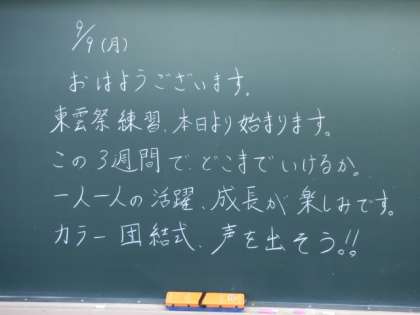 9/9(月)
おはようございます。
東雲祭練習、本日より始まります。
この3週間で、どこまでいけるか。
一人一人の活躍、成長が楽しみです。
カラー団結式、声を出そう!!